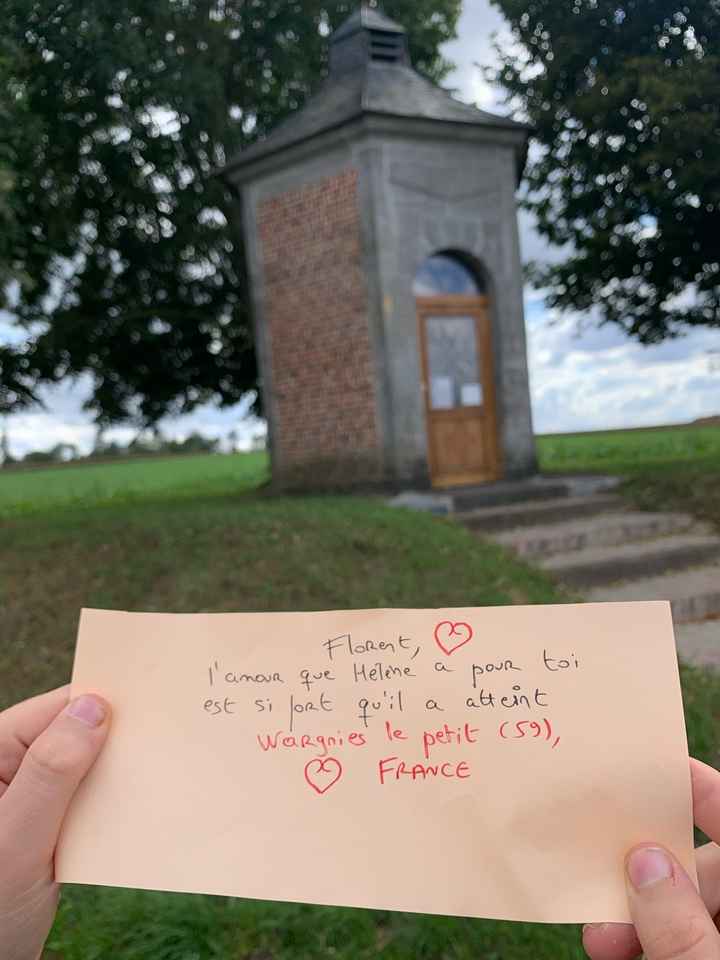 Florent,
l'amour que Hélène a pour toi
est si fort qu'il a atteint
Wargnies le petit (59),
FRANCE